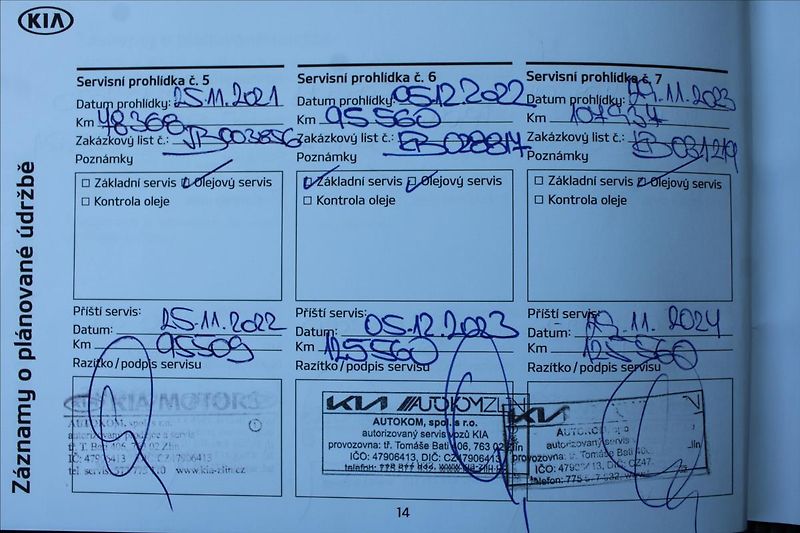 KIA
Záznamy o plánované údržbě
Servisní prohlídka č. 5
Datum prohlídky: 25.11.2021
Km 78368
Zakázkový list č.: JB003856
Poznámky
Základní servis Olejový servis
Kontrola oleje
Příští servis:
Datum: 25.11.2022
Km 95509
Razítko/podpis servisu
KIA MOTORS
AUTOKOM, spol. s r.o.
autorizovaný prodejce a servis
IČ: 47906413 CZ47906413
www.kia-zlin.cz
Servisní prohlídka č. 6
Datum prohlídky: 05.12.2022
Km 95560
Zakázkový list č.: EB028817
Poznámky
Základní servis Olejový servis
Kontrola oleje
Příští servis:
Datum: 05.12.2023
Km 125560
Razítko/podpis servisu
KIA AUTOKOM ZLÍN
AUTOKOM, spol. s r.o.
autorizovaný servis vozů KIA
provozovna: tř. Tomáše Bati 406, 763 02 Zlín
IČO: 47906413, DIČ: CZ47906413
Servisní prohlídka č. 7
Datum prohlídky: 11.2023
Km
Zakázkový list č.: EB031219
Poznámky
Základní servis Olejový servis
Kontrola oleje
Příští servis:
Datum: 11.2024
Km 125560
Razítko/podpis servisu
KIA
autorizovaný servis
provozovna: tř. Tomáše Bati
14